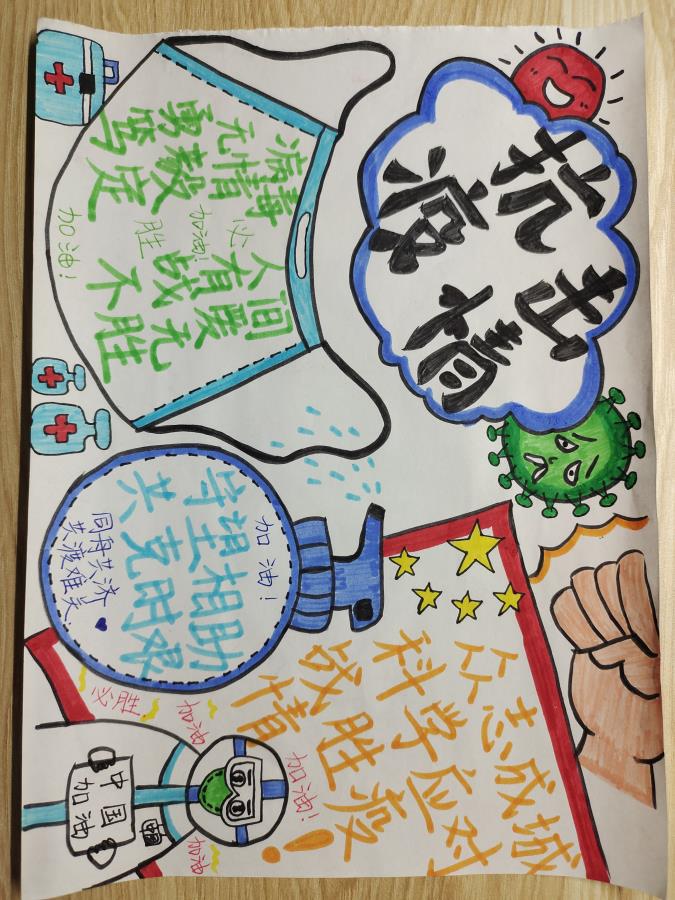 抗击
疫情
病毒
无情
勇敢
笃定
人间
有爱
战无
不胜
必胜
加油!
加油!
加油!
守望相助
共克时艰
同舟共济
共渡难关
众志成城
科学应对
战胜疫
情!
加油!
加油
必胜
加油
中国
加油